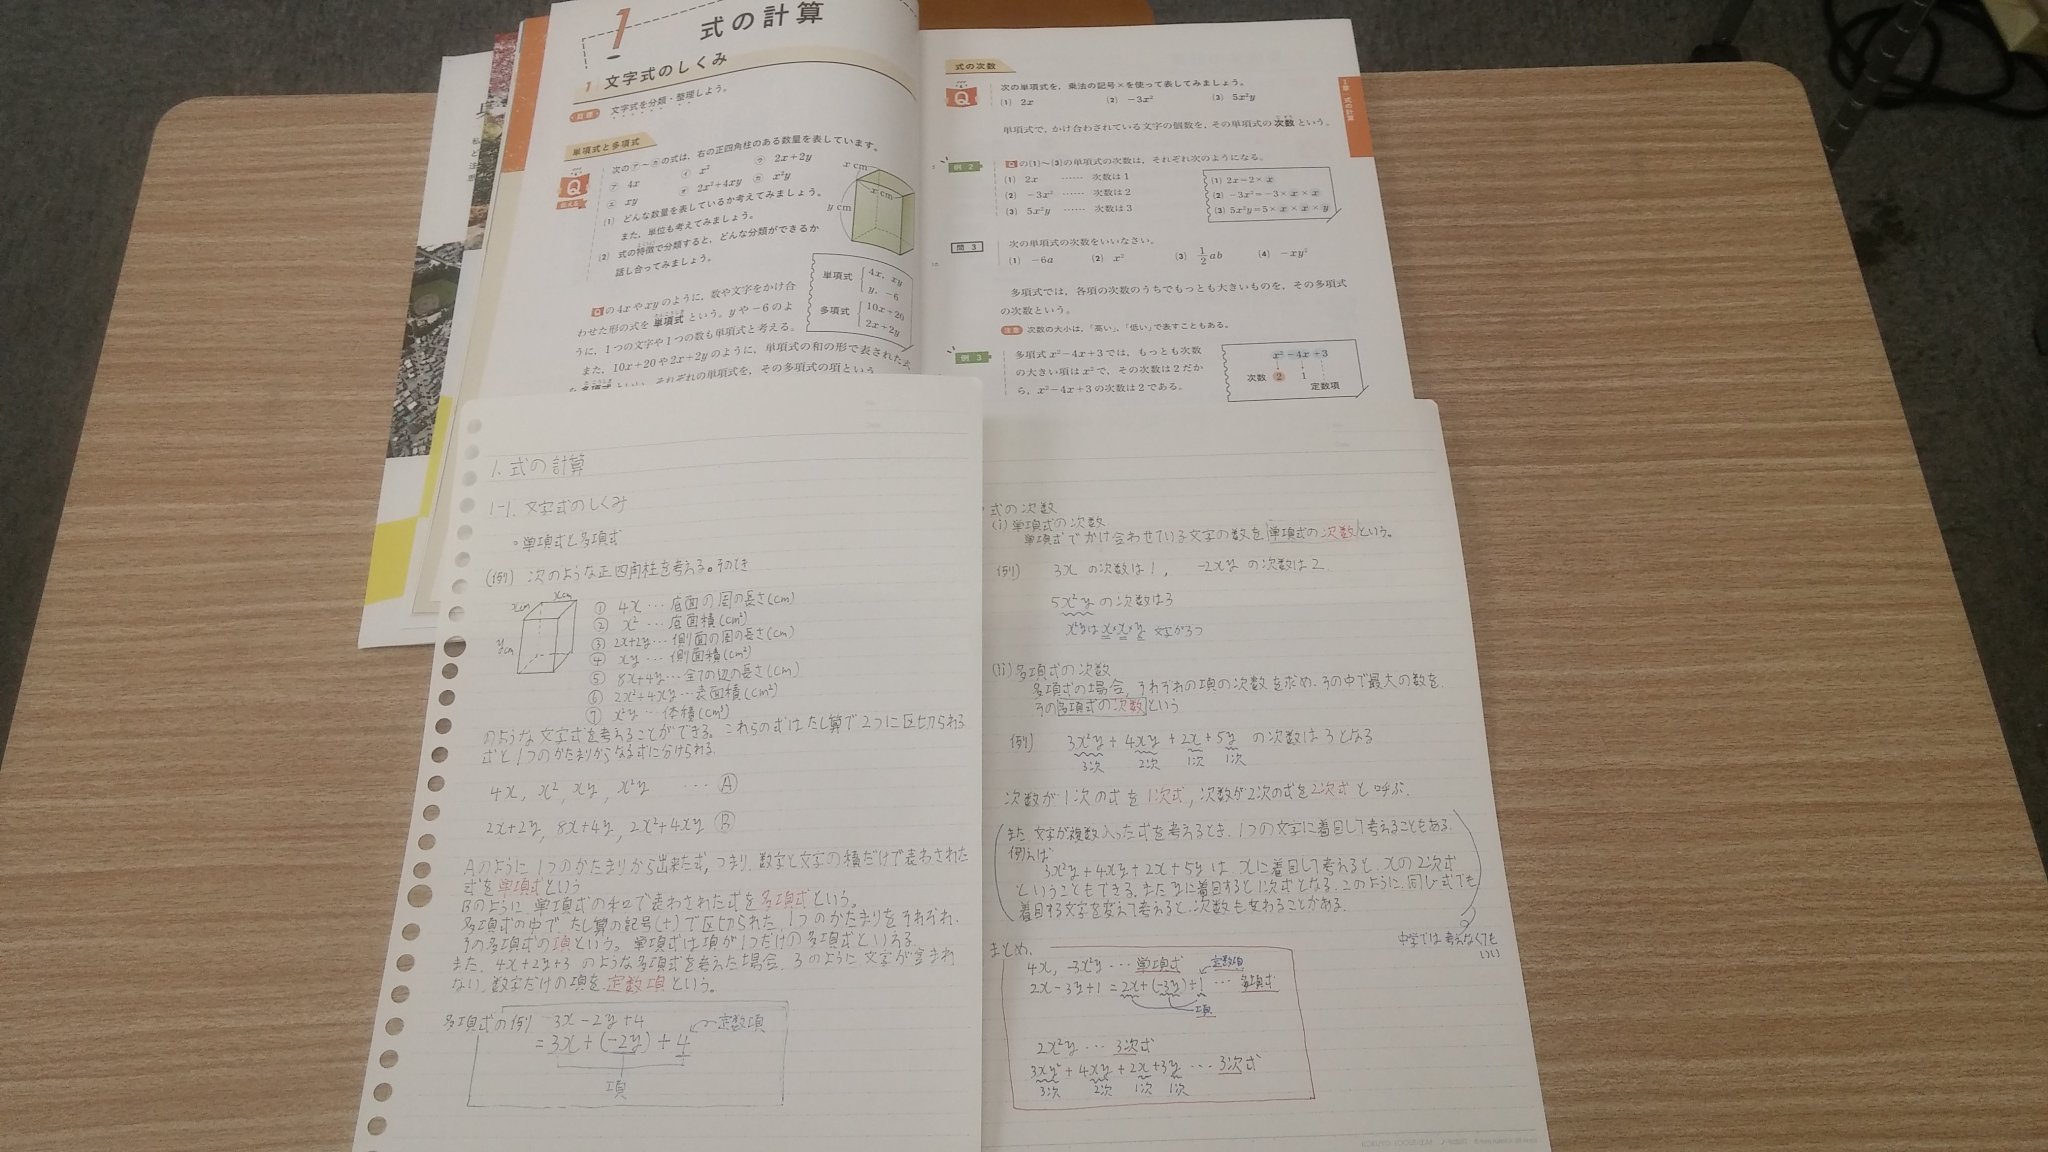 1 式の計算
1 文字式のしくみ
目標 文字式を分類・整理しよう。
単項式と多項式
Q 次の㋐〜㋕の式は，右の正四角柱のある数量を表しています。
㋐ 4x ㋑ x² ㋒ 2x+2y
㋓ xy ㋔ 2x²+4xy ㋕ x²y
(1) どんな数量を表しているか考えてみましょう。
また，単位も考えてみましょう。
(2) 式の特徴で分類すると，どんな分類ができるか
話し合ってみましょう。
x cm
x cm
y cm
Qの4xやxyのように，数や文字をかけ合
わせた形の式を単項式という。yや−6のよ
うに，1つの文字や1つの数も単項式と考える。
また，10x+20や2x+2yのように，単項式の和の形で表された式
を多項式といい，それぞれの単項式を，その多項式の項という
単項式 4x, xy
y, −6
多項式 10x+20
2x+2y
式の次数
Q 次の単項式を，乗法の記号×を使って表してみましょう。
(1) 2x (2) −3x² (3) 5x²y
単項式で，かけ合わされている文字の個数を，その単項式の次数という。
例2 Qの(1)〜(3)の単項式の次数は，それぞれ次のようになる。
(1) 2x …… 次数は1
(2) −3x² …… 次数は2
(3) 5x²y …… 次数は3
(1) 2x=2×x
(2) −3x²=−3×x×x
(3) 5x²y=5×x×x×y
問3 次の単項式の次数をいいなさい。
(1) −6a (2) x² (3) 1/2 ab (4) −xy²
多項式では，各項の次数のうちでもっとも大きいものを，その多項式
の次数という。
注意 次数の大小は，「高い」，「低い」で表すこともある。
例3 多項式x²−4x+3では，もっとも次数
の大きい項はx²で，その次数は2だか
ら，x²−4x+3の次数は2である。
x²−4x+3
次数 2 1 定数項
1章 式の計算
1. 式の計算
1-1. 文字式のしくみ
・単項式と多項式
(例) 次のような正四角柱を考える。そのとき
xcm xcm
ycm
① 4x … 底面の周の長さ(cm)
② x² … 底面積(cm²)
③ 2x+2y … 側面の周の長さ(cm)
④ xy … 側面積(cm²)
⑤ 8x+4y … 全ての辺の長さ(cm)
⑥ 2x²+4xy … 表面積(cm²)
⑦ x²y … 体積(cm³)
のような文字式を考えることができる。これらの式はたし算で2つに区切られる
式と1つのかたまりからなる式に分けられる.
4x, x², xy, x²y … Ⓐ
2x+2y, 8x+4y, 2x²+4xy Ⓑ
Aのように1つのかたまりから出来た式,つまり,数字と文字の積だけで表わされた
式を単項式という
Bのように単項式の和で表わされた式を多項式という。
多項式の中で,たし算の記号(+)で区切られた,1つのかたまりをそれぞれ,
その多項式の項という。単項式は項が1つだけの多項式といえる.
また,4x+2y+3のような多項式を考えた場合,3のように文字が含まれ
ない,数字だけの項を定数項という。
多項式の例 3x−2y+4
=3x+(−2y)+4 定数項
項
・式の次数
(i) 単項式の次数
単項式でかけ合わせている文字の数を単項式の次数という。
例) 3xの次数は1, −2xyの次数は2
5x²yの次数は3
x²yはx×x×y 文字が3つ
(ii) 多項式の次数
多項式の場合,それぞれの項の次数を求め,その中で最大の数を,
その多項式の次数という
例) 3x²y+4xy+2x+5y の次数は3となる
3次 2次 1次 1次
次数が1次の式を1次式,次数が2次の式を2次式と呼ぶ.
また文字が複数入った式を考えるとき,1つの文字に着目して考えることもある.
例えば
3x²y+4xy+2x+5yは,xに着目して考えると,xの2次式
ということもできる.またyに着目すると1次式となる.このように,同じ式でも
着目する文字を変えて考えると,次数も変わることがある.
中学では考えなくても
いい
まとめ.
4x, −3x²y … 単項式 定数項
2x−3y+1=2x+(−3y)+1 … 多項式
項
2x²y … 3次式
3xy²+4xy+2x+3y … 3次式
3次 2次 1次 1次